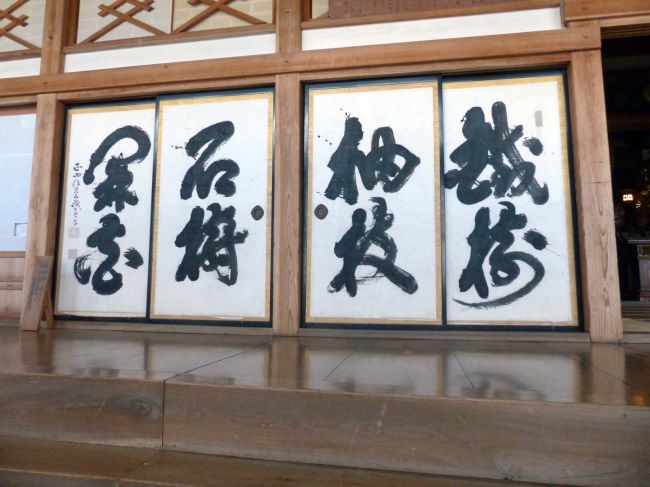 鐵樹
抽枝
石樹
開花